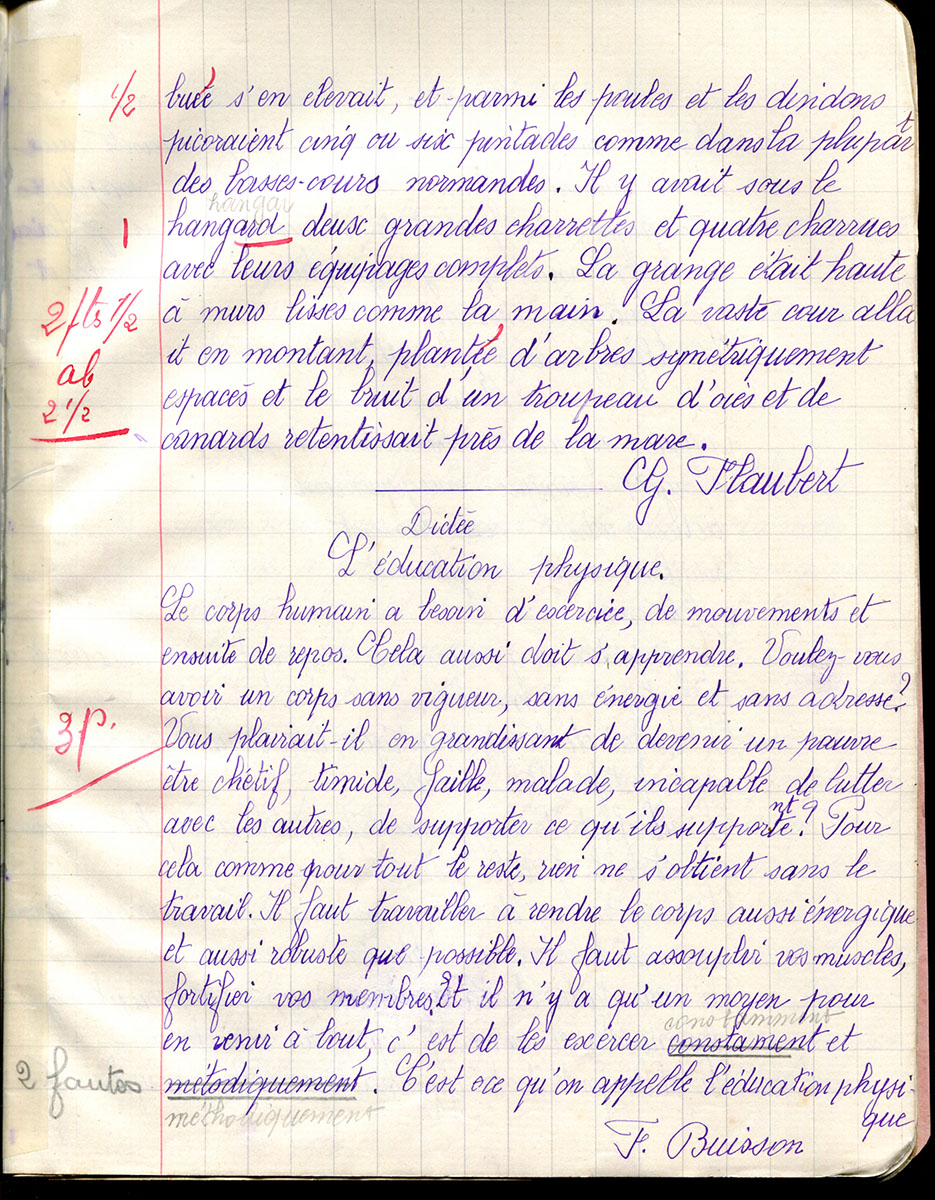 1/2
buée s'en élevait, et parmi les poules et les dindons
picoraient cinq ou six pintades comme dans la plupart
des basses-cours normandes. Il y avait sous le
hangar
1
hangard deux grandes charrettes et quatre charrues
avec leurs équipages complets. La grange était haute
2 fts 1/2
à murs lisses comme la main. La vaste cour alla
it en montant, plantée d'arbres symétriquement
ab
espacés et le bruit d'un troupeau d'oies et de
2 1/2
canards retentissait près de la mare.
G. Flaubert
Dictée
L'éducation physique.
Le corps humain a besoin d'exercice, de mouvements et
ensuite de repos. Cela aussi doit s'apprendre. Voulez-vous
avoir un corps sans vigueur, sans énergie et sans adresse?
3 p.
Vous plairait-il en grandissant de devenir un pauvre
être chétif, timide, faible, malade, incapable de lutter
avec les autres, de supporter ce qu'ils supportent? Pour
cela comme pour tout le reste, rien ne s'obtient sans le
travail. Il faut travailler à rendre le corps aussi énergique
et aussi robuste que possible. Il faut assouplir vos muscles,
fortifier vos membres. Et il n'y a qu'un moyen pour
constamment
en venir à bout, c'est de les exercer constament et
2 fautes
métodiquement. C'est ce qu'on appelle l'éducation physi-
méthodiquement
que
F. Buisson